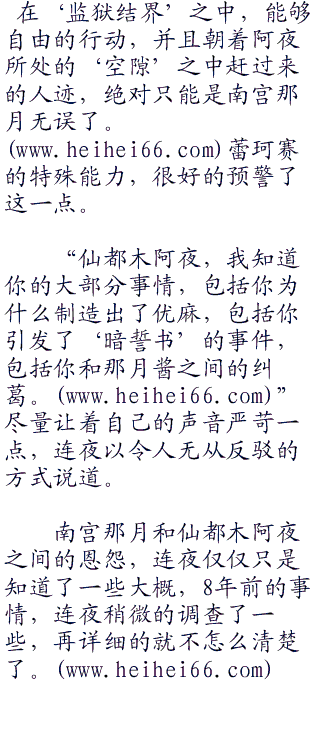 在‘监狱结界’之中，能够
自由的行动，并且朝着阿夜
所处的‘空隙’之中赶过来
的人迹，绝对只能是南宫那
月无误了。
(www.heihei66.com)蕾珂赛
的特殊能力，很好的预警了
这一点。
“仙都木阿夜，我知道
你的大部分事情，包括你为
什么制造出了优麻，包括你
引发了‘暗誓书’的事件，
包括你和那月酱之间的纠
葛。(www.heihei66.com)”
尽量让着自己的声音严苛一
点，连夜以令人无从反驳的
方式说道。
南宫那月和仙都木阿夜
之间的恩怨，连夜仅仅只是
知道了一些大概，8年前的事
情，连夜稍微的调查了一
些，再详细的就不怎么清楚
了。(www.heihei66.com)